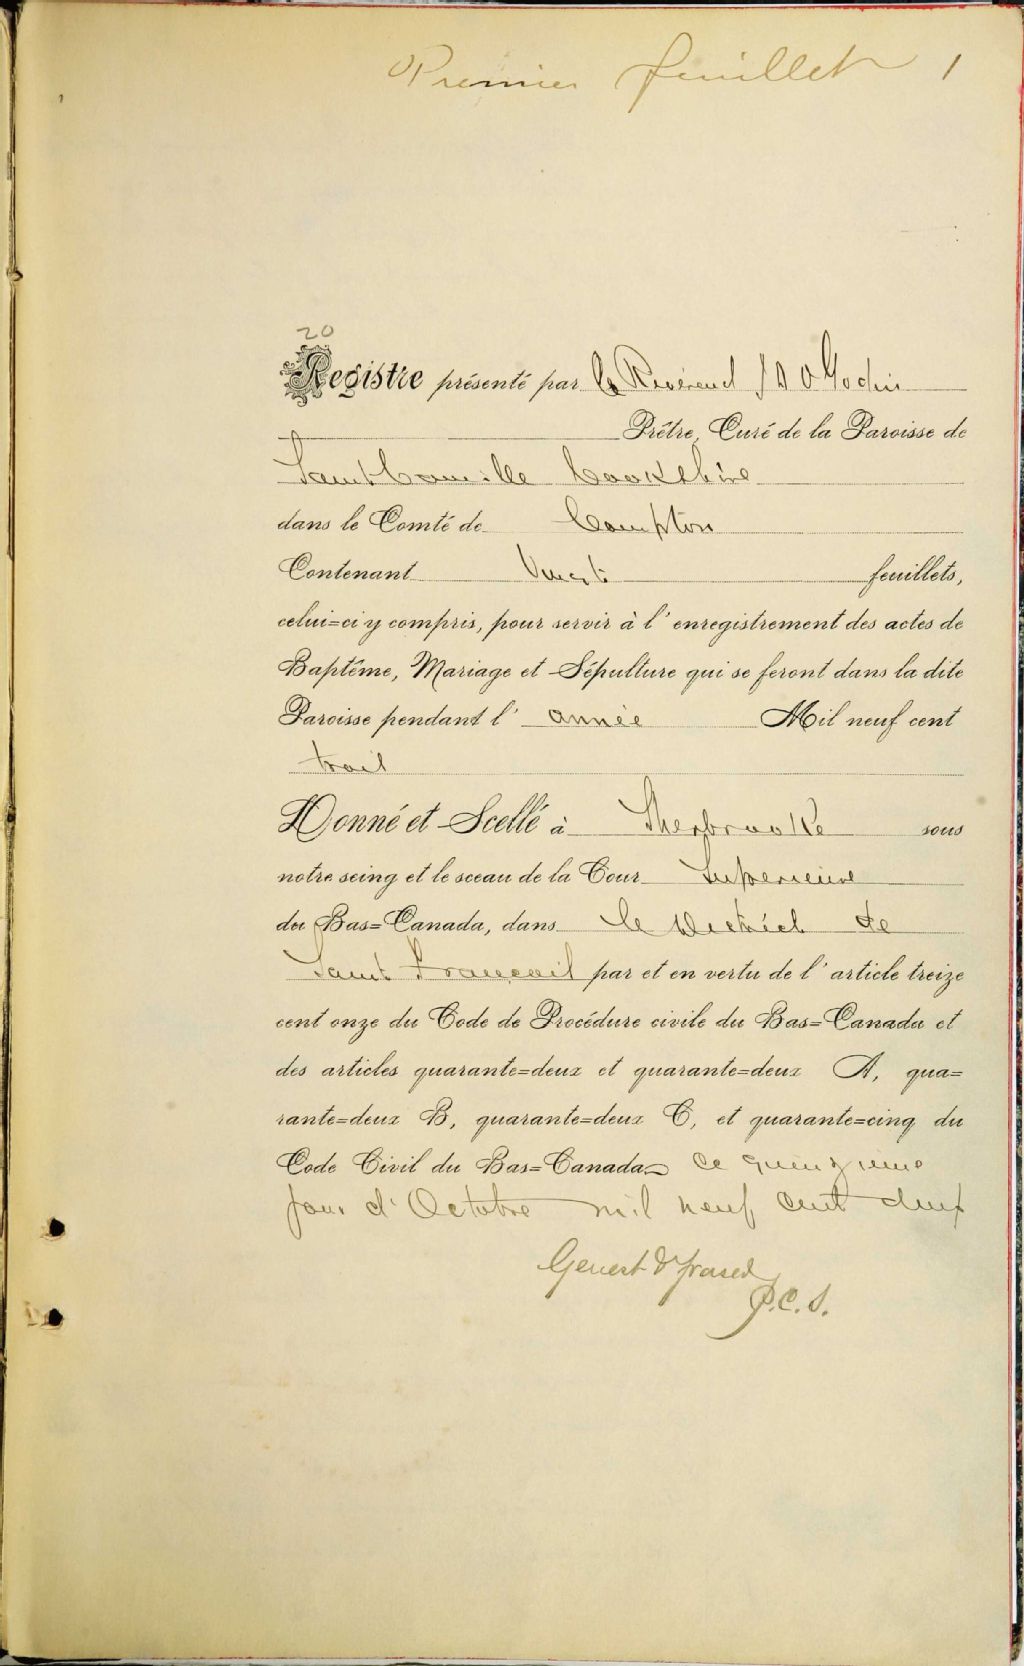 Premier feuillet 1
20
Registre présenté par le Révérend J A O Godin
Prêtre, Curé de la Paroisse de
Saint Camille Cookshire
dans le Comté de Compton
Contenant Vingt feuillets,
celui=ci y compris, pour servir à l'enregistrement des actes de
Baptême, Mariage et Sépulture qui se feront dans la dite
Paroisse pendant l'année Mil neuf cent
trois
Donné et Scellé à Sherbrooke sous
notre seing et le sceau de la Cour Superieure
du Bas=Canada, dans le District de
Saint François par et en vertu de l'article treize
cent onze du Code de Procédure civile du Bas=Canada et
des articles quarante=deux et quarante=deux A, qua=
rante=deux B, quarante=deux C, et quarante=cinq du
Code Civil du Bas=Canada ce quinzieme
jour d'Octobre mil neuf cent deux
Genest & Fraser
P.C.S.